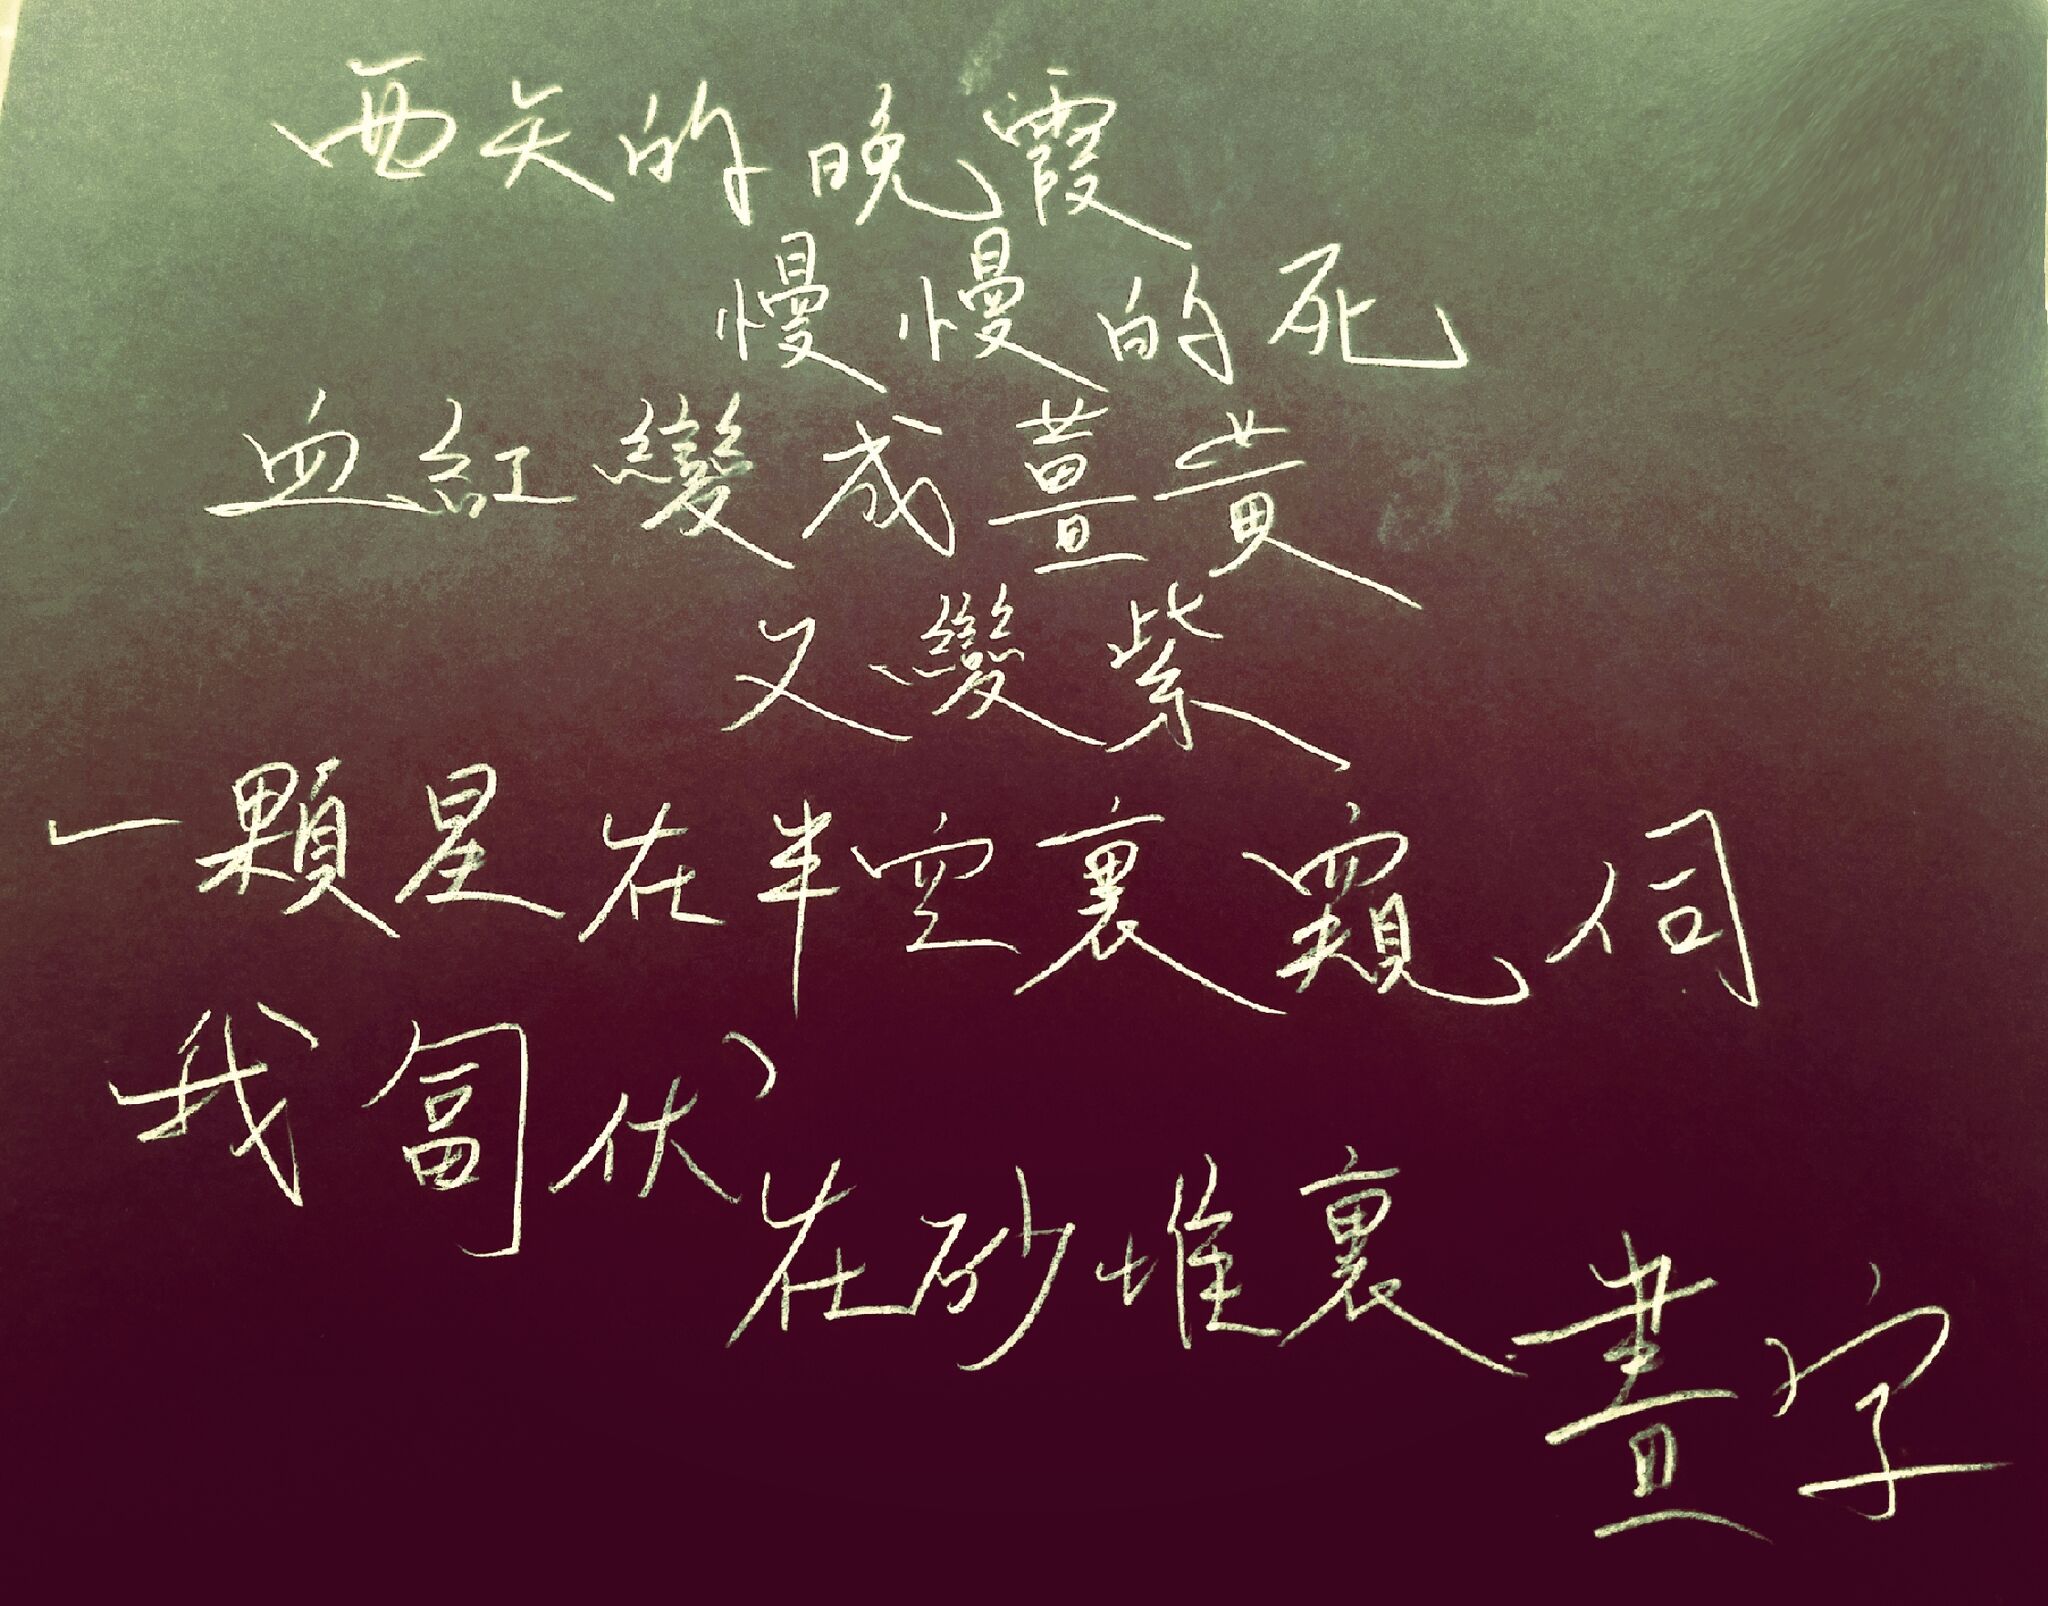 西天的晚霞
慢慢的死
血紅變成薑黃
又變紫
一顆星在半空裏窺伺
我匍伏
在砂堆裏
畫字